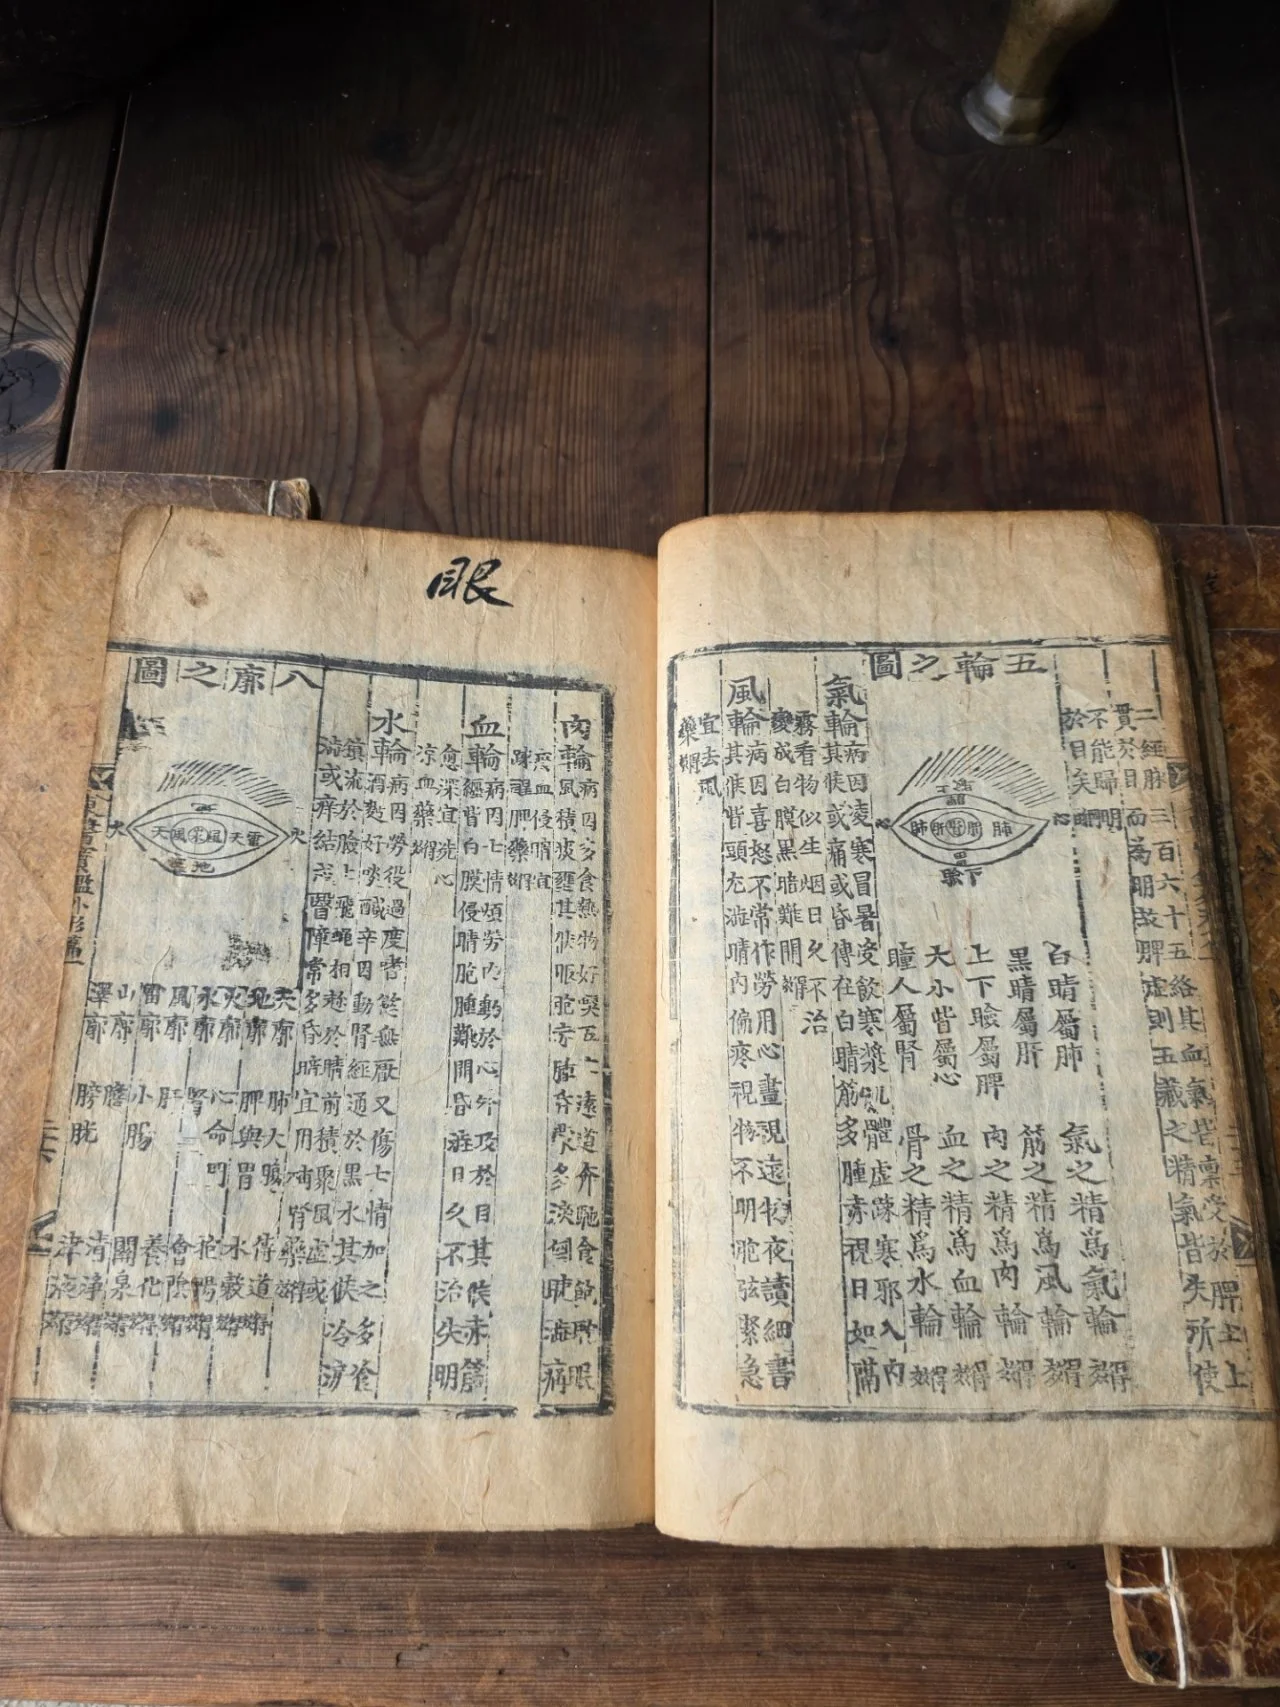 二經脉三百六十五絡其血氣皆稟受於脾土上
貫於目而為明故脾虛則五藏之精氣皆失所使
不能歸明
於目矣綱目
五輪之圖
上
下瞼
心
心
肺
肝
腎
肺
白睛屬肺 氣之精爲氣輪 得效
黒睛屬肝 筋之精爲風輪 得效
上下瞼屬脾 肉之精爲肉輪 得效
大小眥屬心 血之精爲血輪 得效
瞳人屬腎 骨之精爲水輪 得效
氣輪病因凌寒冒暑受飲寒漿肌體虛踈寒邪入內
其候或痛或昏傳在白睛筋多腫赤視日如隔
霧看物似生烟日久不治
變成白膜黑暗難開得效
風輪病因喜怒不常作勞用心晝視遠物夜讀細書
其候眥頭尤澁睛內偏疼視物不明胞弦緊急
宜去風
藥得效
眼
肉輪病因多食熱物好喫五辛遠道奔馳食飽耽眠
風積痰壅其候眼胞赤腫昏蒙多淚倒睫澁痛
瘀血侵睛宜
踈醒脾藥得效
血輪病因七情煩勞內動於心外及於目其候赤筋
經眥白膜侵睛胞腫難開昏澁日久不治失明
愈深宜洗心
凉血藥得效
水輪病因勞役過度嗜慾無厭又傷七情加之多食
酒麪好啖醎辛因動腎經通於黒水其候冷淚
鎭流於臉上飛蠅相趂於睛前積聚風虛或
澁或痒結成翳障常多昏暗宜用補腎藥得效
八廓之圖
火
火
天
風
水
風
天
雷
地
天廓 肺大腸 傳道得效
地廓 脾與胃 水穀得效
火廓 心命門 抱陽得效
水廓 腎 會陰得效
風廓 肝 養化得效
雷廓 小腸 關泉得效
山廓 膽 清浄得效
澤廓 膀胱 津液得效